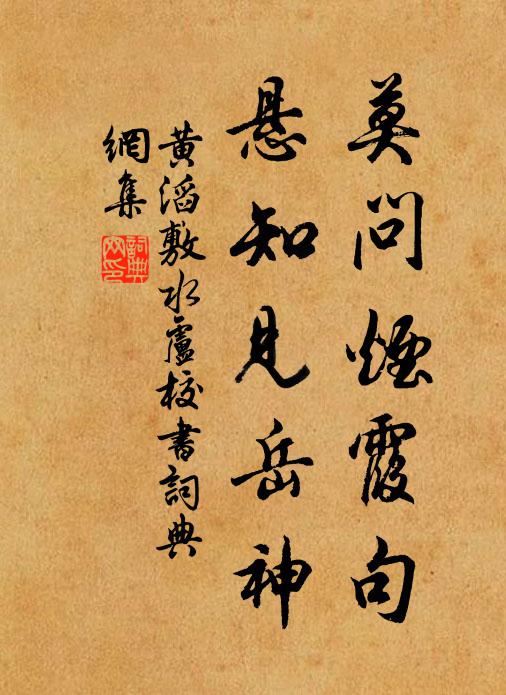 莫问煙霞句
悬知見岳神
黄滔敷水盧校書詞典
網集
詞典
网印